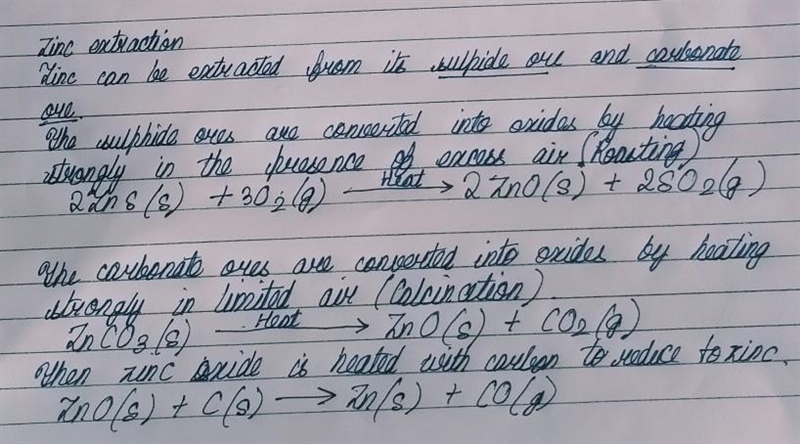 Zinc extraction
Zinc can be extracted from its sulphide ore and carbonate
ore.
The sulphide ores are converted into oxides by heating
strongly in the presence of excess air (Roasting)
2ZnS(s) + 3O₂(g) —Heat→ 2ZnO(s) + 2SO₂(g)
The carbonate ores are converted into oxides by heating
strongly in limited air (Calcination).
ZnCO₃(s) —Heat→ ZnO(s) + CO₂(g)
Then zinc oxide is heated with carbon to reduce to zinc.
ZnO(s) + C(s) → Zn(s) + CO(g)